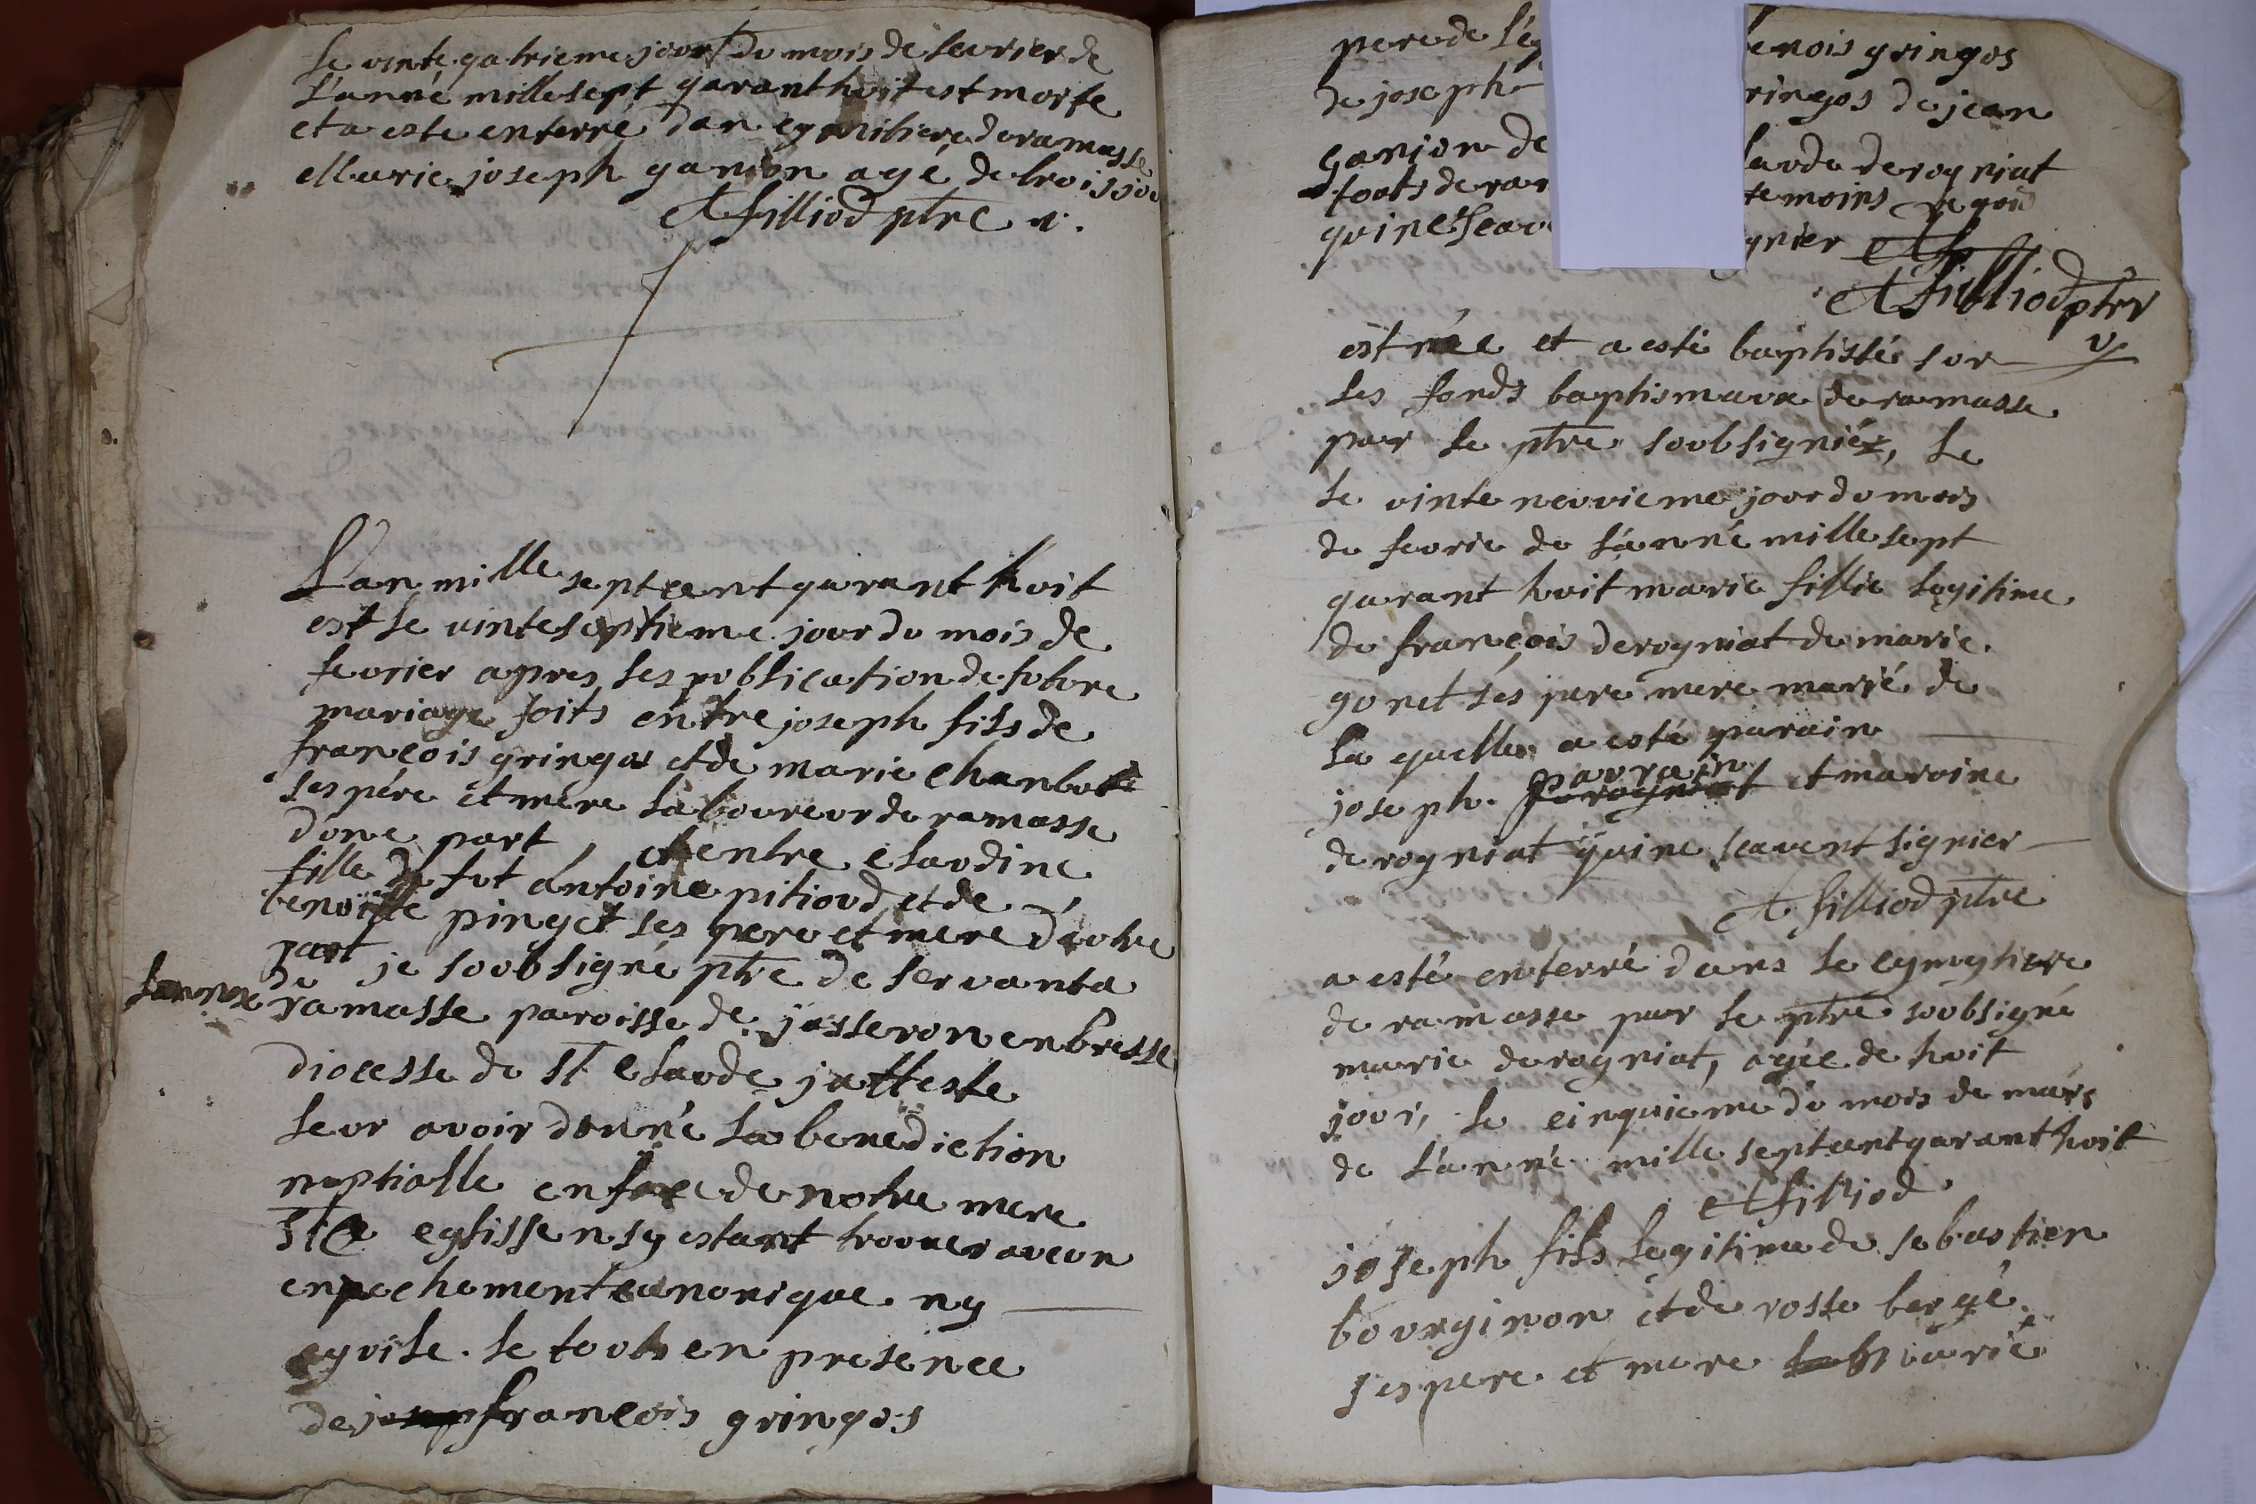 le vinte qatrieme jour du mois de fevrier de
l'anné mille sept qarant huit est morte
et a este enterré dan cymitiere de ramasse
Marie joseph ganion agé de trois jou
A filliod ptre v.
L'an mille sept cent qarant huit
est le vinte septieme jour du mois de
fevrier apres les publication de future
mariage foits entre joseph fils de
françois gringos et de marie chanbot
ses pére et mére laboureur de ramasse
done part, et entre claudine
fille de fut antoine pitioud et de
benoitte pinget ses pere et mere d'autre
part je soubsigné ptre de servanta
lannex de ramasse paroisse de jasseron en bresse
diocesse de st claude j'atteste
leur avoir donné la benediction
nuptialle en face de notre mere
ste eglisse n sy estant trouver aucun
enpechement canonique ny
cyvile. le touts en presence
de françois gringos
pere de l'ep enois gringos
de joseph ringos de jean
ganion de laude derogniat
touts de ra temoins
qui ne scav gnier
A filliod ptre
v
est née et a esté baptistée sur
les fonds baptismaux de ramasse
par le ptre soubsignié, le
le vinte neuvieme jour du mois
de fevrie de l'anné mille sept
qarant huit marie fillie legitime
de françois derogniat de marie
gonet ses pere mere marié de
la quelle a esté parain
joseph. parrain et maraine
derogniat qui ne scavent signier
A filliod ptre
a esté enterré dans le cymytiere
de ramasse par le ptre soubsigné
marie derogniat, agée de huit
jour, le cinquieme du mois de mars
de l'anné mille sept cent qarant huit
A filliod
joseph fils legitime de sebastien
bourginon et de rosse bergé
ses pere et mere marié